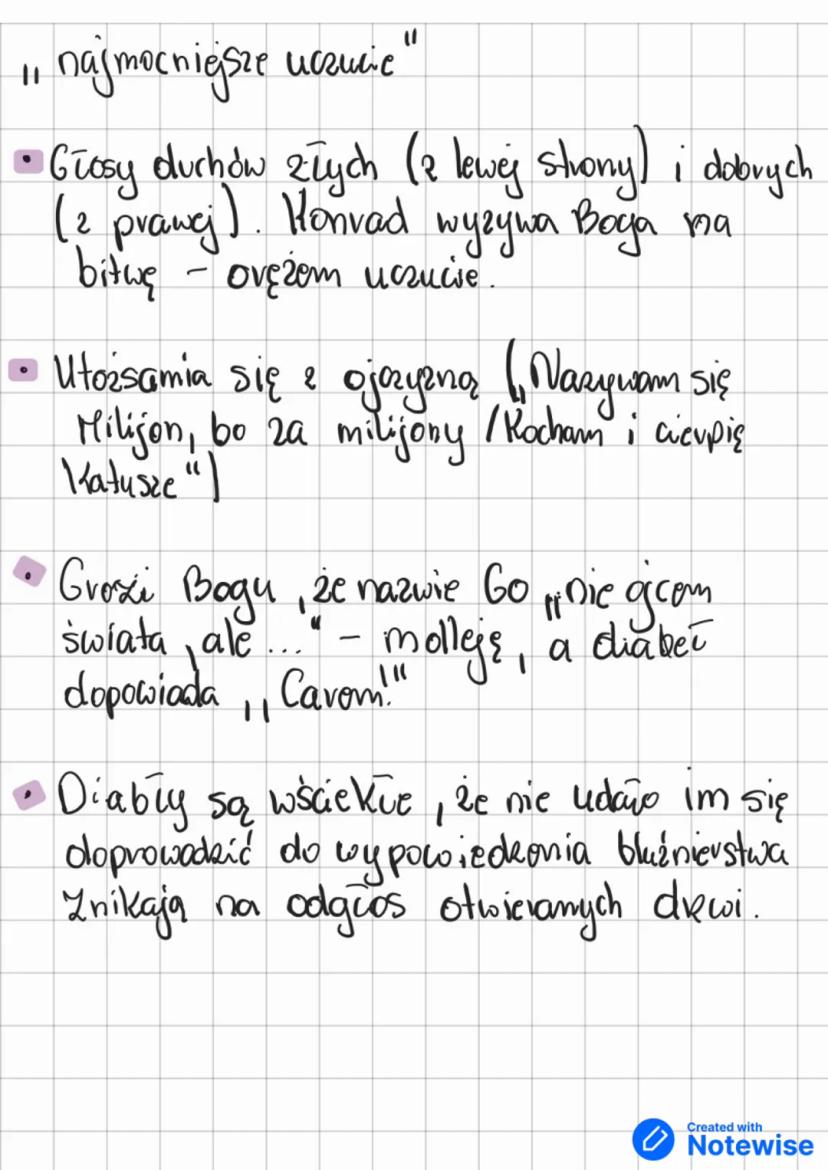 „najmocniejsze uczucie"
• Głosy duchów złych (z lewej strony) i dobrych
(z prawej). Konrad wyzywa Boga na
bitwę - orężem uczucie.
• Utożsamia się z ojczyzną („Nazywam się
Milijon, bo za milijony / Kocham i cierpię
Katusze")
• Grozi Bogu, że nazwie Go „nie ojcem
świata, ale ..." - mdleję, a diabeł
dopowiada „Carem!"
• Diabły są wściekłe, że nie udało im się
doprowadzić do wypowiedzenia bluźnierstwa
Znikają na odgłos otwieranych drzwi.
Created with
Notewise